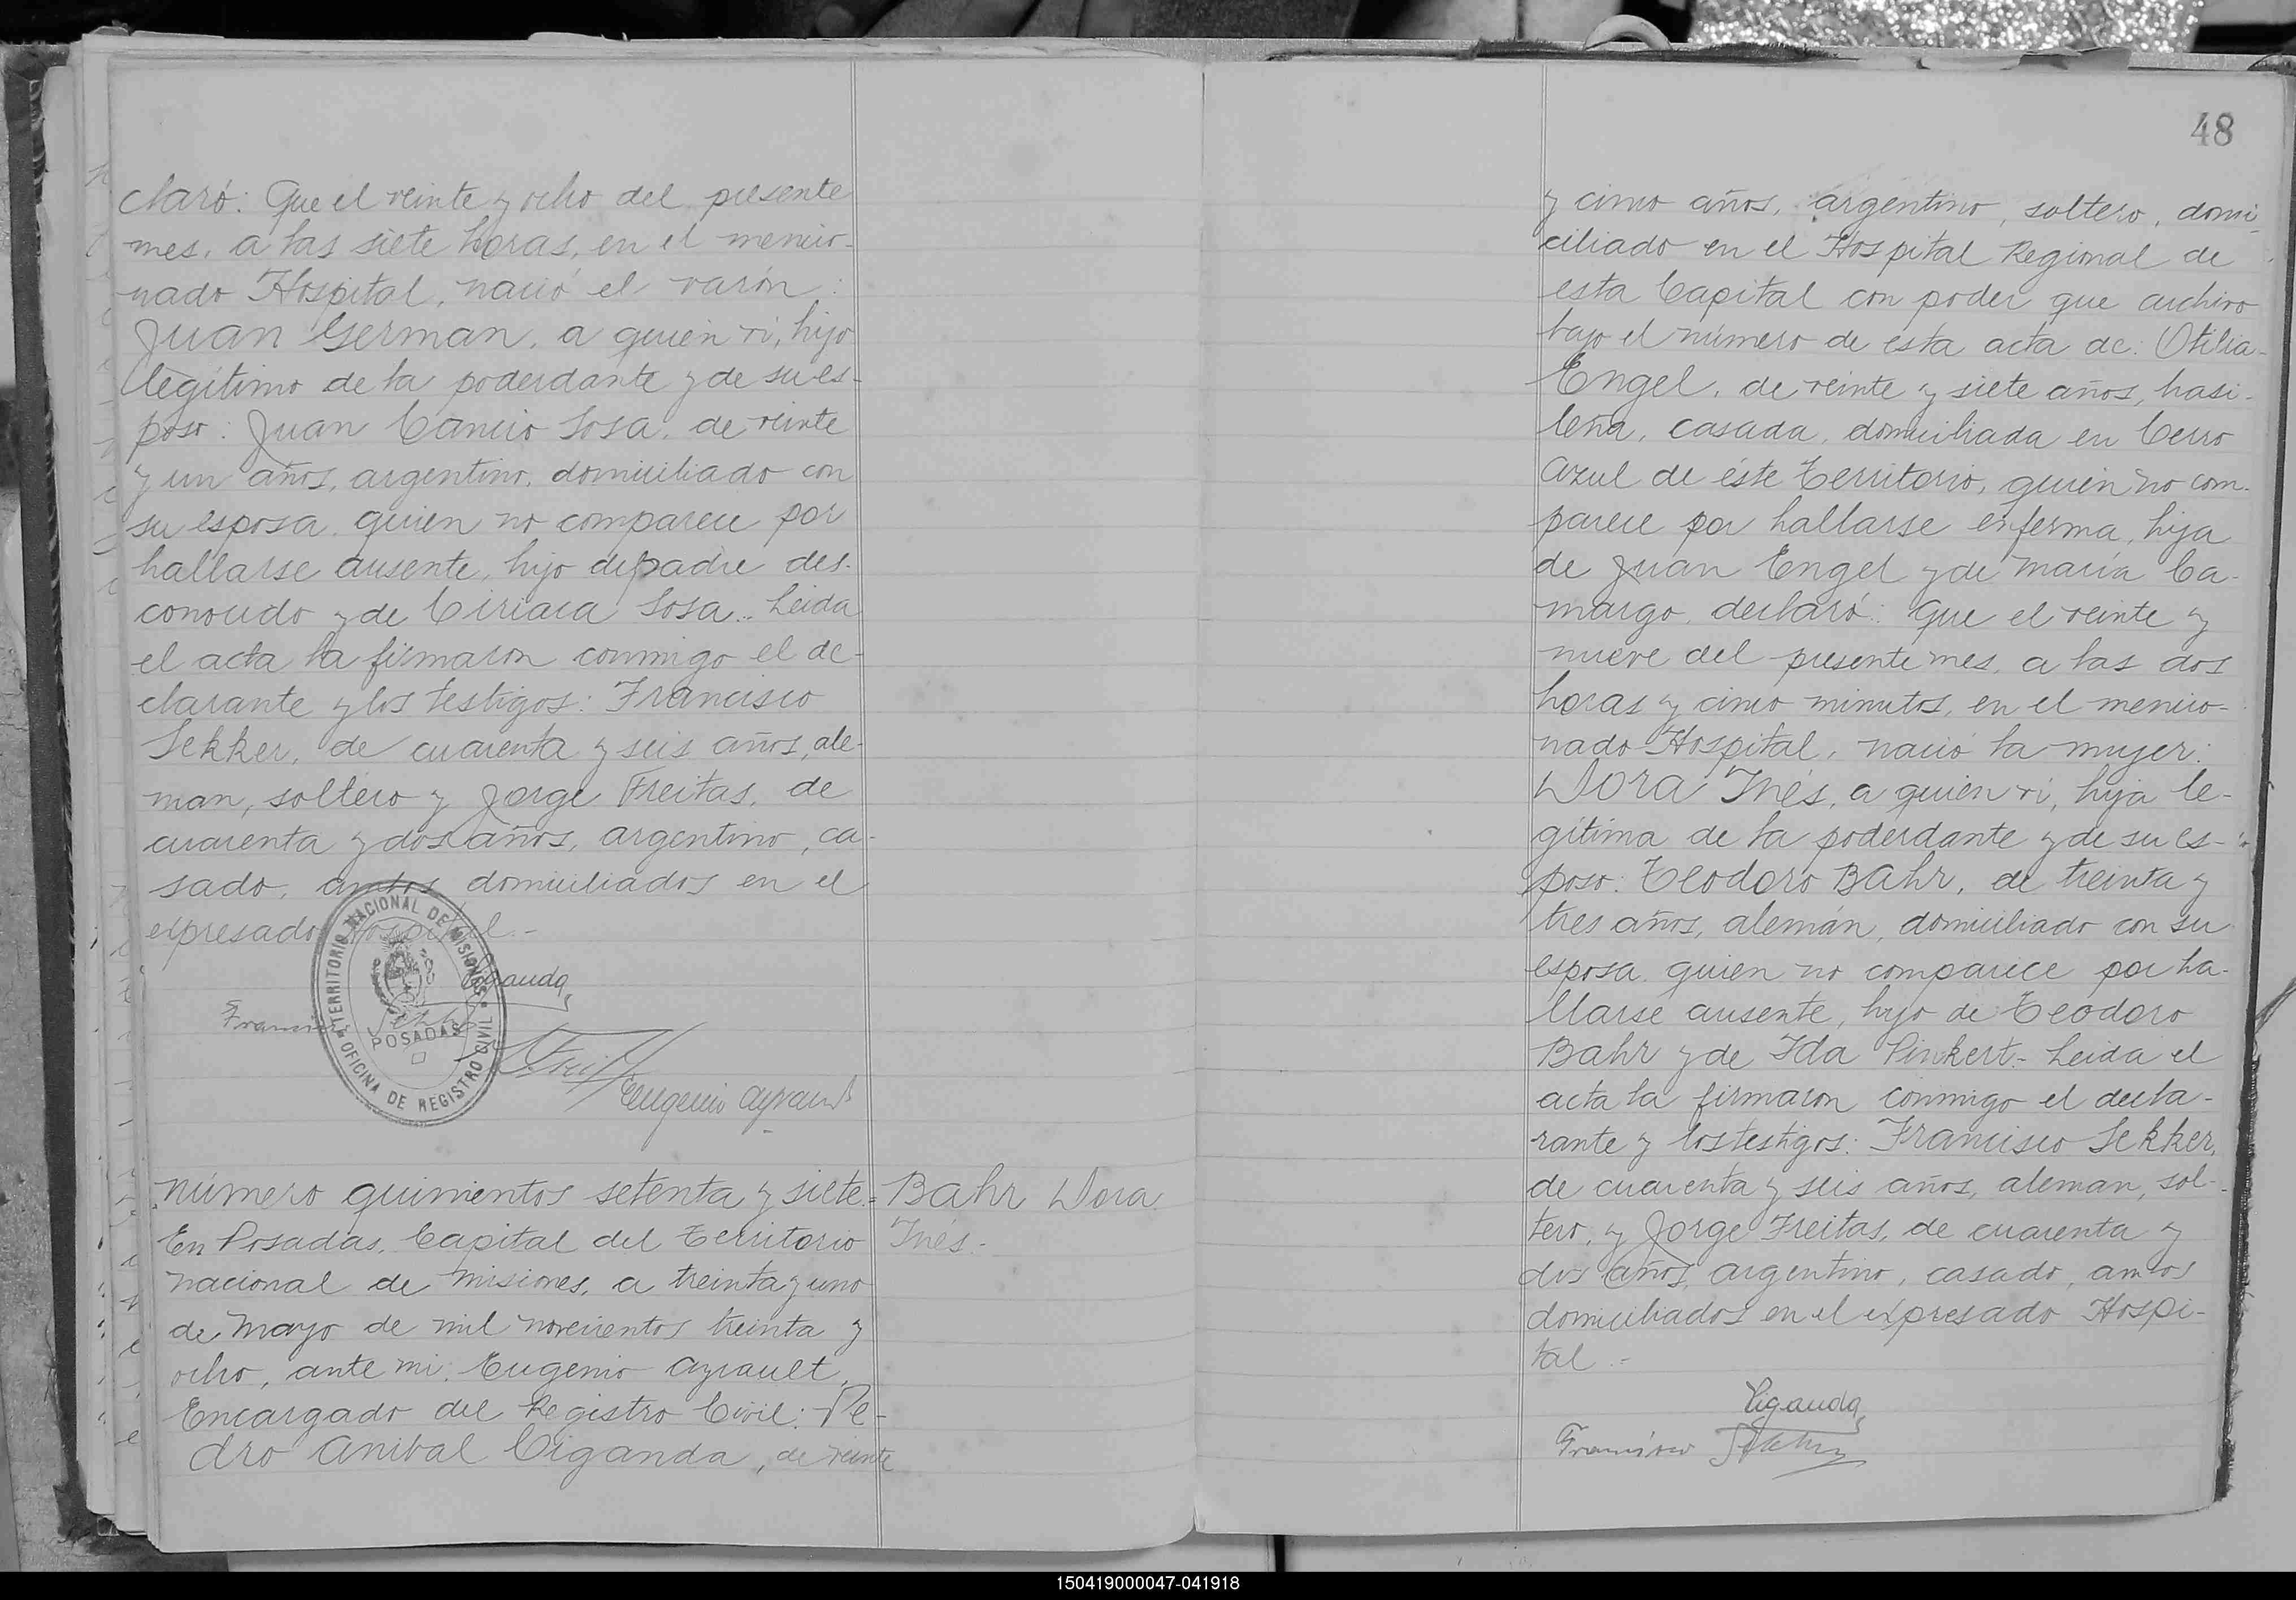 claró: Que el veinte y ocho del presente
mes, a las siete horas, en el mencio-
nado Hospital, nació el varón:
Juan German, a quien vi, hijo
legítimo de la poderdante y de su es-
poso: Juan Cancio Sosa, de veinte
y un años, argentino, domiciliado con
su esposa, quien no comparece por
hallarse ausente, hijo de padre des-
conocido y de Ciriaca Sosa.. Leida
el acta la firmaron conmigo el de-
clarante y los testigos: Francisco
Sekker, de cuarenta y seis años, ale-
man, soltero y Jorge Freitas, de
cuarenta y dos años, argentino, ca-
sado, ambos domiciliados en el
expresado Hospital.-
TERRITORIO NACIONAL DE MISIONES
POSADAS
OFICINA DE REGISTRO CIVIL
Ciganda
Francisco Sekker
Eugenio Ayrault
Número quinientos setenta y siete.=
Bahr Dora
Inés.-
En Posadas, Capital del Territorio
nacional de Misiones, a treinta y uno
de Mayo de mil novecientos treinta y
ocho, ante mi: Eugenio Ayrault,
Encargado del Registro Civil: Pe-
dro Anibal Ciganda, de veinte
48
y cinco años, argentino, soltero, domi-
ciliado en el Hospital Regional de
esta Capital con poder que archivo
bajo el número de esta acta de: Otilia
Engel, de veinte y siete años, brasi-
leña, casada, domiciliada en Cerro
Azul de éste Territorio, quien no com-
parece por hallarse enferma, hija
de Juan Engel y de María Ca-
margo, declaró: Que el veinte y
nueve del presente mes, a las dos
horas y cinco minutos, en el mencio-
nado Hospital, nació la mujer:
Dora Inés, a quien vi, hija le-
gítima de la poderdante y de su es-
poso: Teodoro Bahr, de treinta y
tres años, alemán, domiciliado con su
esposa, quien no comparece por ha-
llarse ausente, hijo de Teodoro
Bahr y de Ida Pinkert.- Leida el
acta la firmaron conmigo el decla-
rante y los testigos: Francisco Sekker,
de cuarenta y seis años, aleman, sol-
tero, y Jorge Freitas, de cuarenta y
dos años, argentino, casado, ambos
domiciliados en el expresado Hospi-
tal.-
Ciganda
Francisco Sekker
150419000047-041918